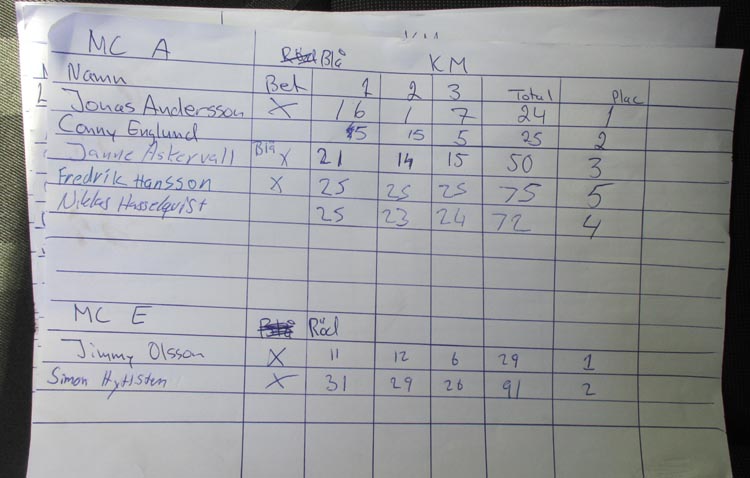 MC A Blå KM
Namn Bet 1 2 3 Total Plac
Jonas Andersson X 16 1 7 24 1
Conny Englund 5 15 5 25 2
Janne Askervall Blå X 21 14 15 50 3
Fredrik Hansson X 25 25 25 75 5
Niklas Hasselqvist 25 23 24 72 4
MC E Röd
Jimmy Olsson X 11 12 6 29 1
Simon X 31 29 26 91 2